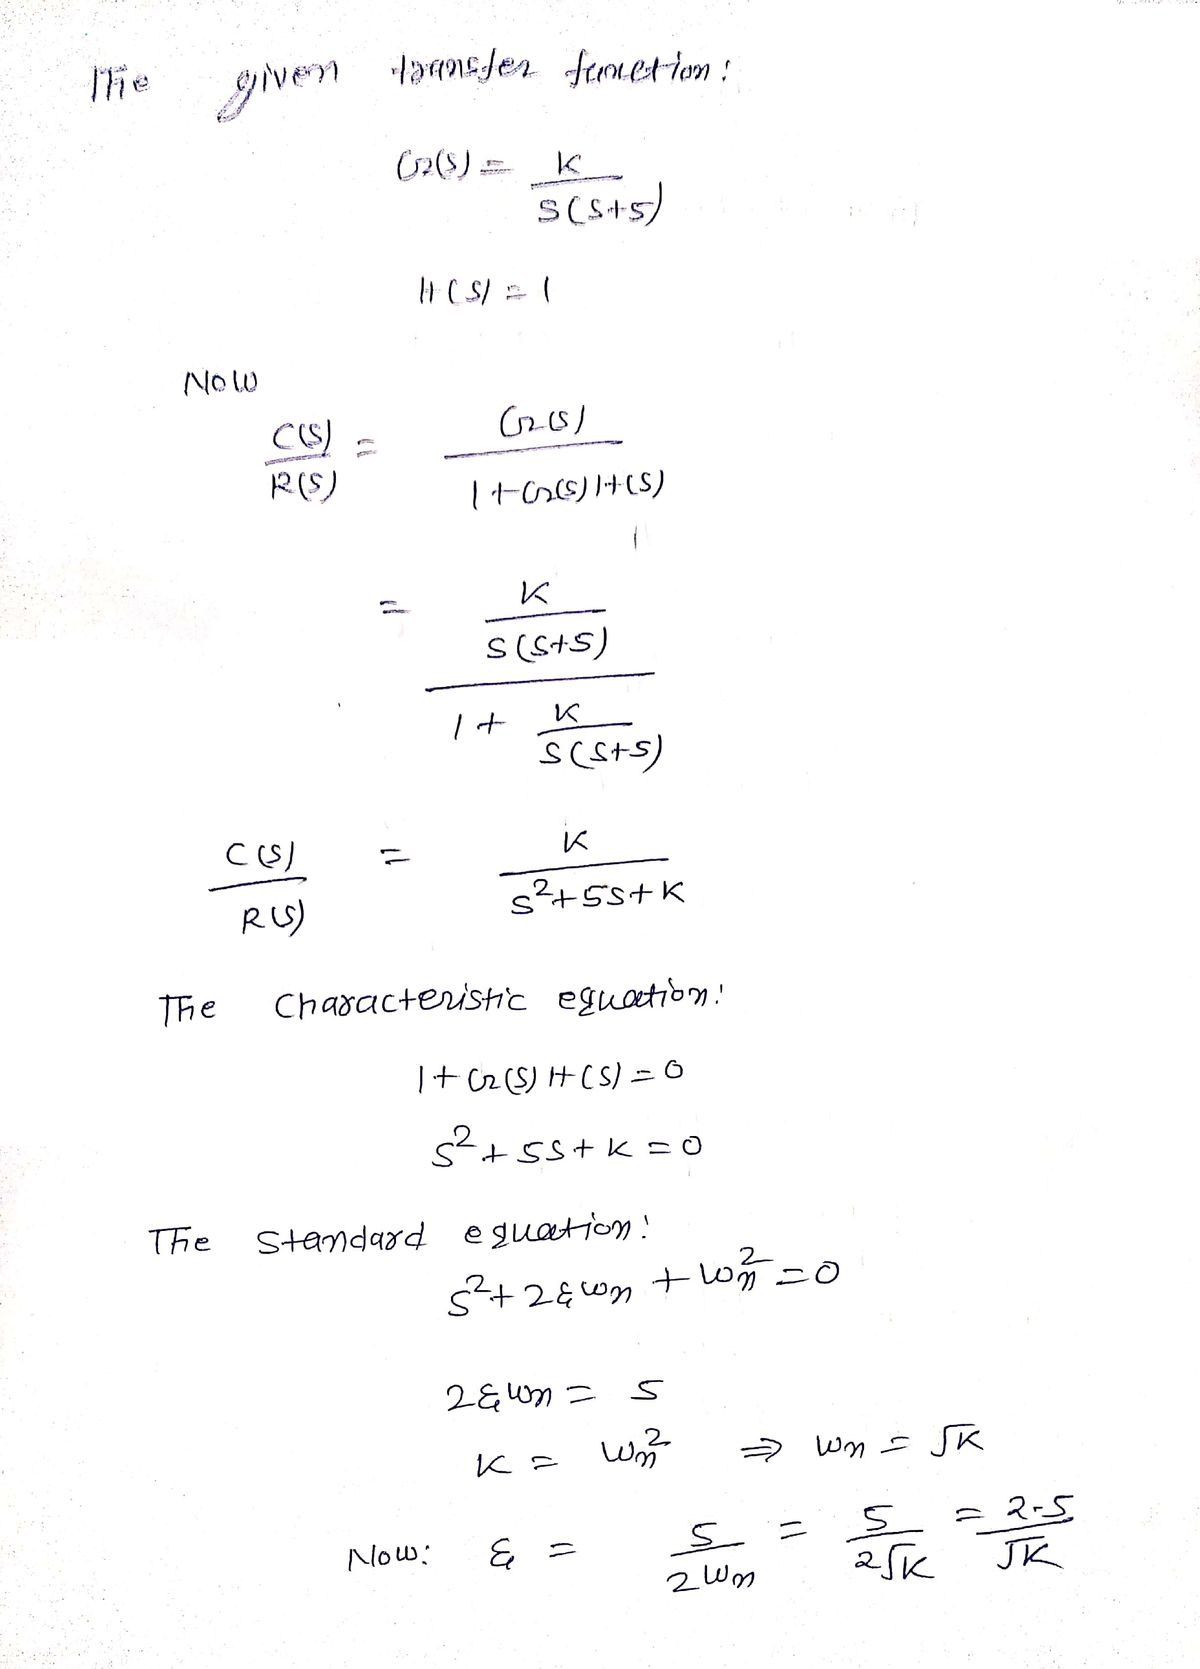 The given transfer function:
G(s) = K
S(S+5)
H(S) = 1
Now
C(S) = G(S)
R(S) 1+G(S)H(S)
= K
S(S+5)
1+ K
S(S+5)
C(S) = K
R(S) S²+5S+K
The Characteristic equation:
1+G(S)H(S)=0
S²+5S+K=0
The Standard equation:
S²+2ξωn+ωn²=0
2ξωn = 5
K = ωn² ⇒ ωn = √K
Now: ξ = 5 = 5 = 2.5
2ωn 2√K √K